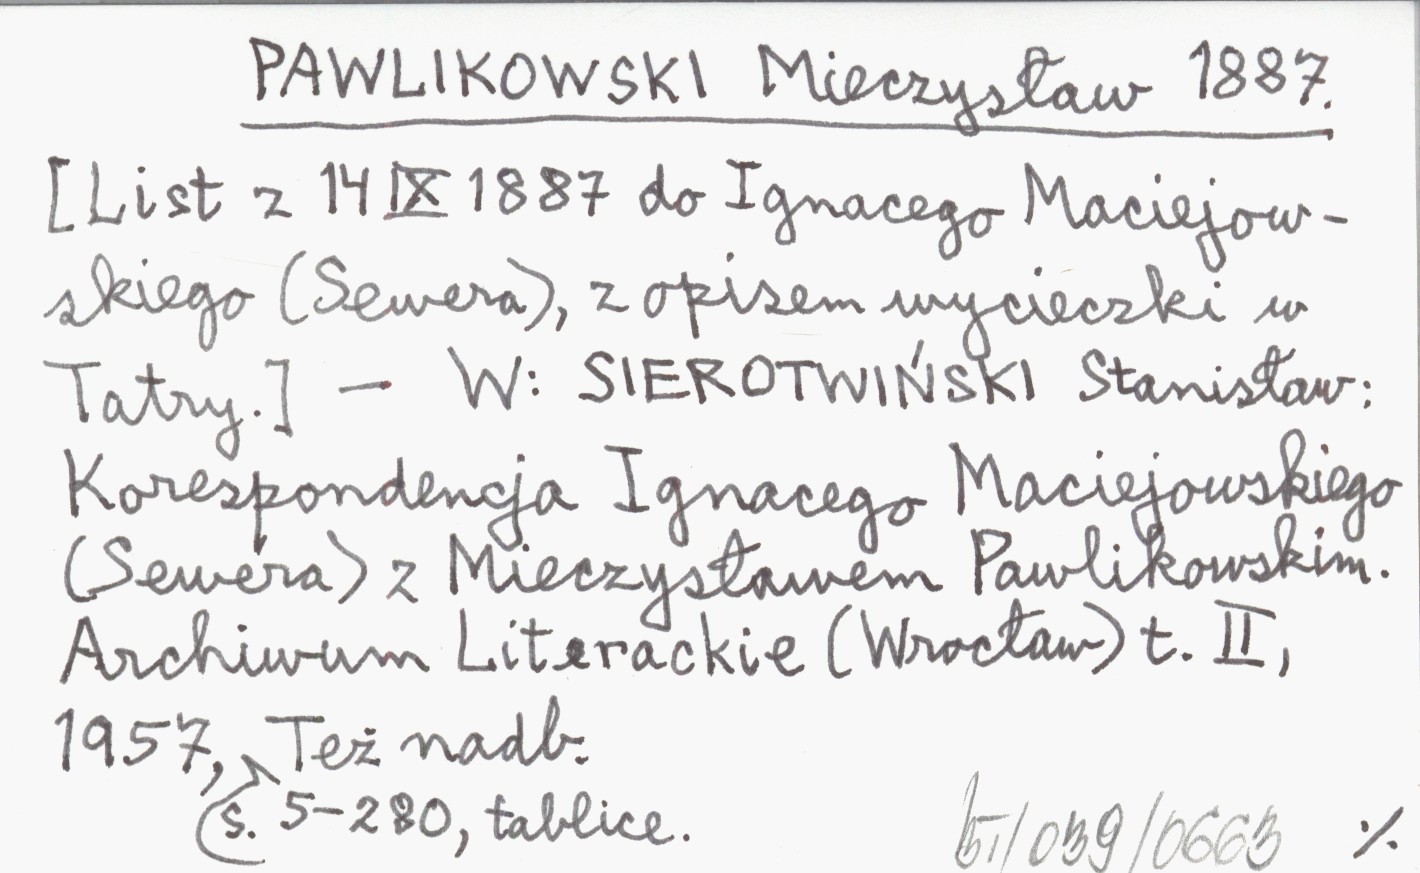 PAWLIKOWSKI Mieczysław 1887.
[List z 14 IX 1887 do Ignacego Maciejow-
skiego (Sewera), z opisem wycieczki w
Tatry.] — W: SIEROTWIŃSKI Stanisław:
Korespondencja Ignacego Maciejowskiego
(Sewera) z Mieczysławem Pawlikowskim.
Archiwum Literackie (Wrocław) t. II,
1957, Też nadb.
s. 5-280, tablice.
/039/0663 ./.